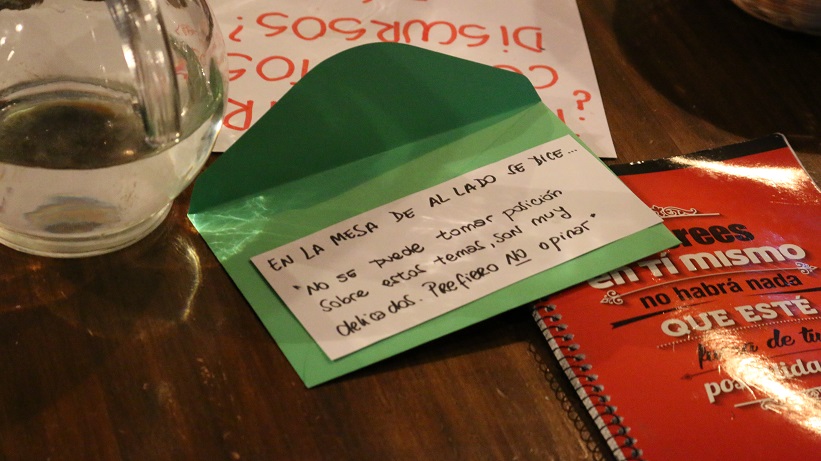 DISCURSOS?
EN LA MESA DE AL LADO SE DICE...
"NO SE puede tomar posición
sobre estos temas, son muy
delicados. Prefiero NO opinar"
en tí mismo
no habrá nada
QUE ESTÉ
de